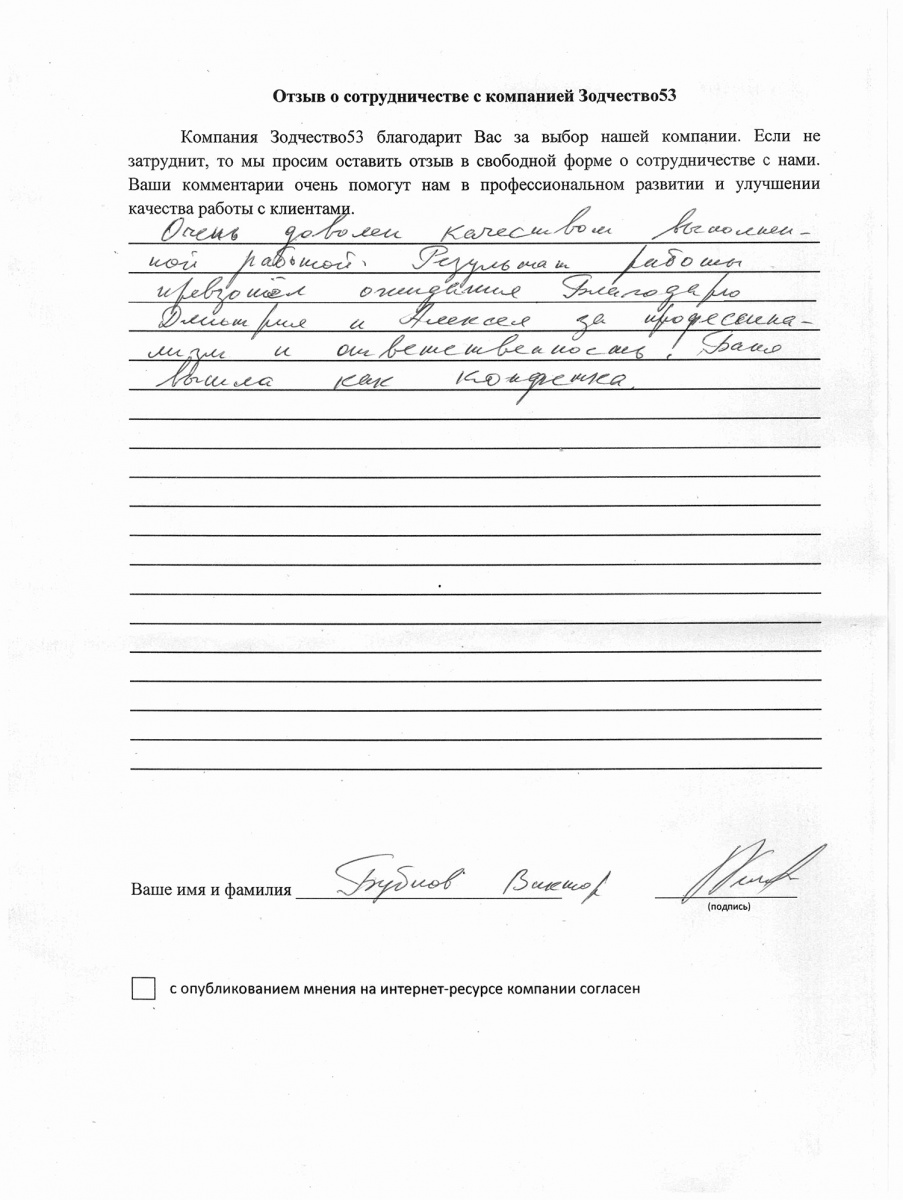 Отзыв о сотрудничестве с компанией Зодчество53
Компания Зодчество53 благодарит Вас за выбор нашей компании. Если не
затруднит, то мы просим оставить отзыв в свободной форме о сотрудничестве с нами.
Ваши комментарии очень помогут нам в профессиональном развитии и улучшении
качества работы с клиентами.
Очень доволен качеством выполнен-
ной работой. Результат работы
превзошёл ожидания Благодарю
Дмитрия и Алексея за профессиона-
лизм и ответственность! Баня
вышла как конфетка.
Ваше имя и фамилия Бубнов Виктор
(подпись)
с опубликованием мнения на интернет-ресурсе компании согласен